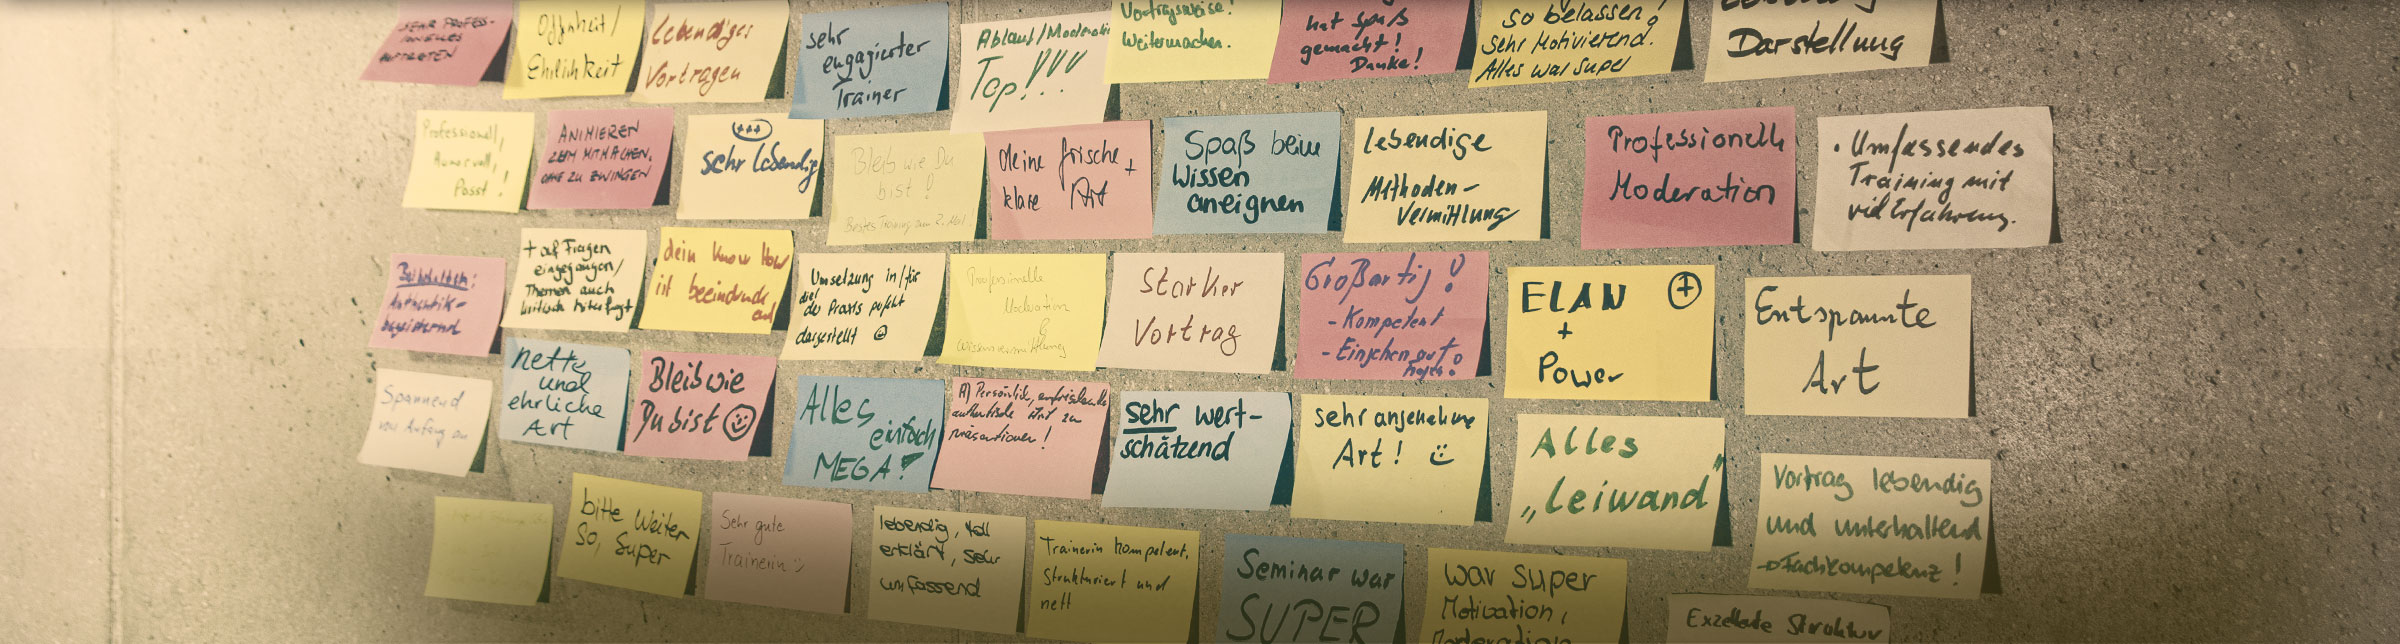 SEHR PROFES-
SIONELLES
AUFTRETEN
Offenheit/
Ehrlichkeit
Lebendiges
Vortragen
sehr
engagierter
Trainer
Ablauf/Moderation
Top!!!
Vortragsweise!
Weitermachen.
hat Spaß
gemacht!
Danke!
so belassen!
Sehr Motivierend.
Alles war super
Darstellung
Professionell,
Humorvoll,
Passt!
ANIMIEREN
ZUM MITMACHEN,
OHNE ZU ZWINGEN
+++
sehr lebendig
Bleib wie Du
bist!
Bestes Training zum 2. Mal!
deine frische +
klare Art
Spaß beim
Wissen
aneignen
lebendige
Methoden-
Vermittlung
Professionelle
Moderation
• Umfassendes
Training mit
viel Erfahrung.
Beibehalten:
Authentik-
begeisternd
+ auf Fragen
eingegangen/
Themen auch
kritisch hinterfragt
dein Know How
ist beeindruck
end
Umsetzung in/für
die
der Praxis perfekt
dargestellt ☺
Professionelle
Motivation
&
Wissensvermittlung
Starker
Vortrag
Großartig!
- Kompetent
- Eingehen auf
ELAN +
+
Power
Entspannte
Art
Spannend
von Anfang an
nette
und
ehrliche
Art
Bleib wie
Du bist ☺
Alles
einfach
MEGA!
A) Persönlich, erfrischende
authentische Art zu
präsentieren!
sehr wert-
schätzend
sehr angenehme
Art! ☺
Alles
„leiwand"
Vortrag lebendig
und unterhaltend
→ Fachkompetenz!
bitte weiter
so, super
Sehr gute
Trainerin ☺
lebendig, toll
erklärt, sehr
umfassend
Trainerin kompetent,
strukturiert und
nett
Seminar war
SUPER
war super
Motivation,
Moderation
Exzellente Struktur